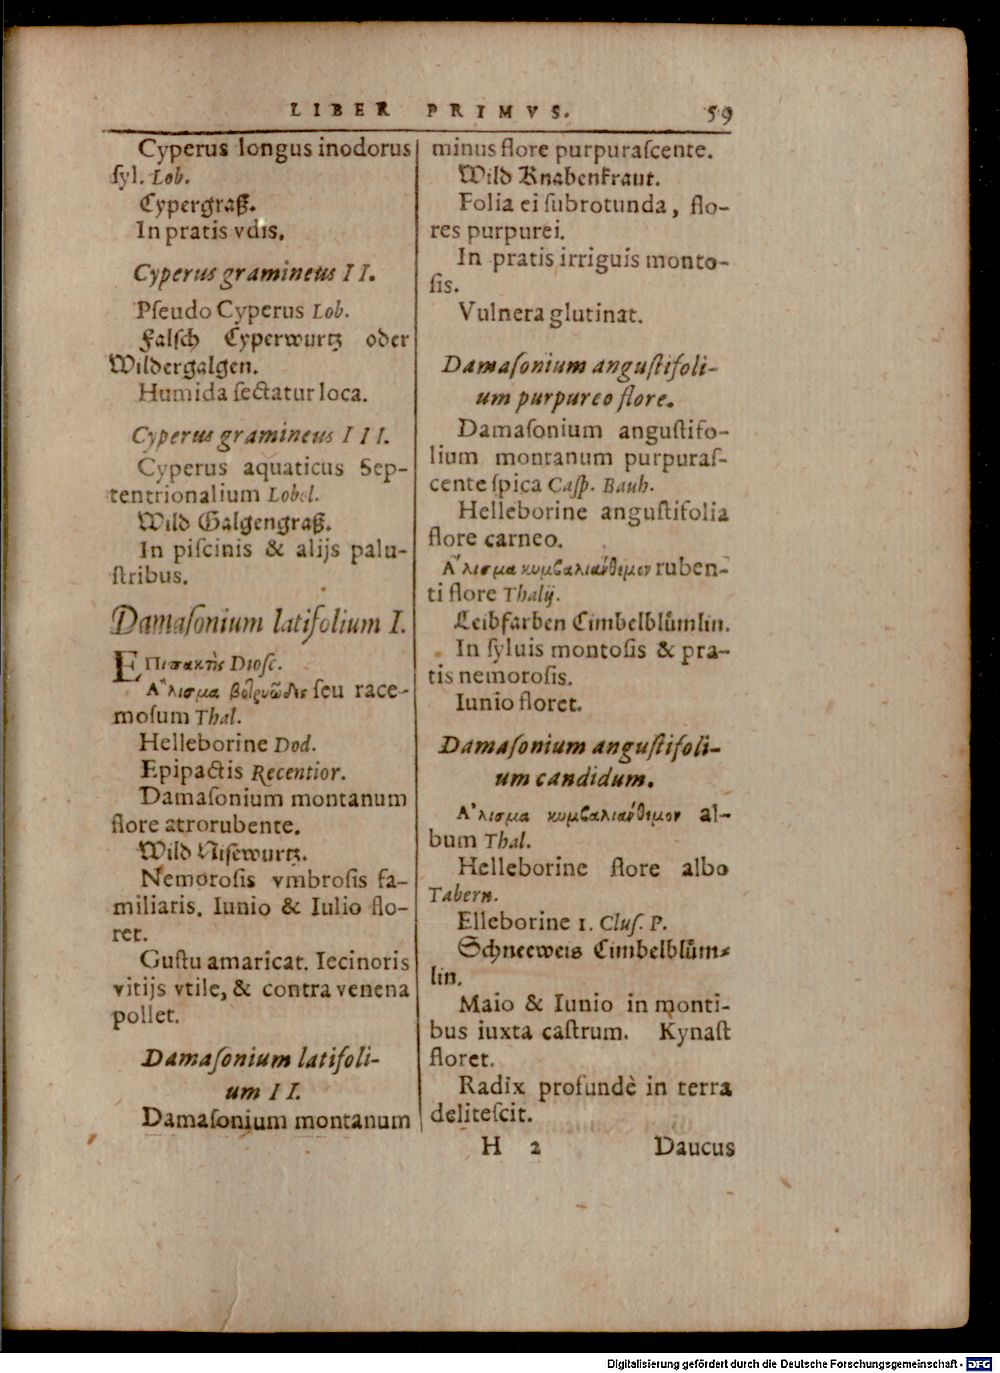 LIBER PRIMVS. 59
Cyperus longus inodorus
ſyl. Lob.
Cypergraß.
In pratis vdis.
Cyperus gramineus II.
Pſeudo Cyperus Lob.
Falſch Cyperwurtz oder
Wildergalgen.
Humida ſectatur loca.
Cyperus gramineus III.
Cyperus aquaticus Sep-
tentrionalium Lobel.
Wild Galgengraß.
In piſcinis & alijs palu-
ſtribus.
Damaſonium latifolium I.
Επιπακτὶς Dioſc.
Α῎λισμα βοτρυῶδες ſeu race-
moſum Thal.
Helleborine Dod.
Epipactis Recentior.
Damaſonium montanum
flore atrorubente.
Wild Niſewurtz.
Nemoroſis vmbroſis fa-
miliaris. Iunio & Iulio flo-
ret.
Guſtu amaricat. Iecinoris
vitijs vtile, & contra venena
pollet.
Damaſonium latifoli-
um II.
Damaſonium montanum
minus flore purpuraſcente.
Wild Knabenkraut.
Folia ei ſubrotunda, flo-
res purpurei.
In pratis irriguis monto-
ſis.
Vulnera glutinat.
Damaſonium anguſtifoli-
um purpureo flore.
Damaſonium anguſtifo-
lium montanum purpuraſ-
cente ſpica Caſp. Bauh.
Helleborine anguſtifolia
flore carneo.
Α῎λισμα κυμβαλιάνθεμον ruben-
ti flore Thalij.
Leibfarben Cimbelblůmlin.
In ſyluis montoſis & pra-
tis nemoroſis.
Iunio floret.
Damaſonium anguſtifoli-
um candidum.
Α῎λισμα κυμβαλιάνθεμον al-
bum Thal.
Helleborine flore albo
Tabern.
Elleborine 1. Cluſ. P.
Schneeweis Cimbelblům-
lin.
Maio & Iunio in monti-
bus iuxta caſtrum. Kynaſt
floret.
Radix profundè in terra
deliteſcit.
H 2 Daucus
Digitalisierung gefördert durch die Deutsche Forschungsgemeinschaft - DFG